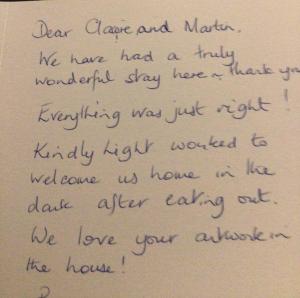 Dear Claire and Martin,
We have had a truly
wonderful stay here ~ Thank you
Everything was just right!
Kindly Light worked to
welcome us home in the
dark after eating out.
We love your artwork in
the house!